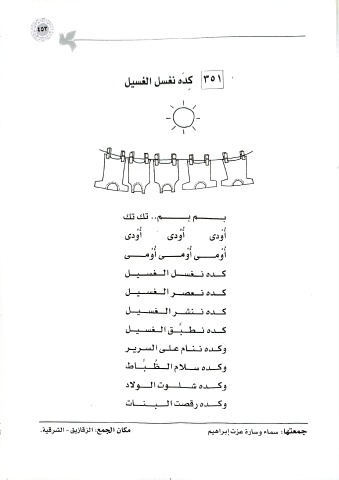 ٤٥٣
٣٥١ كِدَه نغسل الغسيل
بـم بـم.. تك تك
أُودى أُودى أُودى
أُومى أُومى أُومى
كده نغسل الغسيل
كده نعصر الغسيل
كده ننشر الغسيل
كده نطبَّق الغسيل
وكده ننام على السرير
وكده سلام الظُّبَّاط
وكده شلوت الولاد
وكده رقصت البنات
جمعتها: سماء وسارة عزت إبراهيم مكان الجمع: الزقازيق - الشرقية.